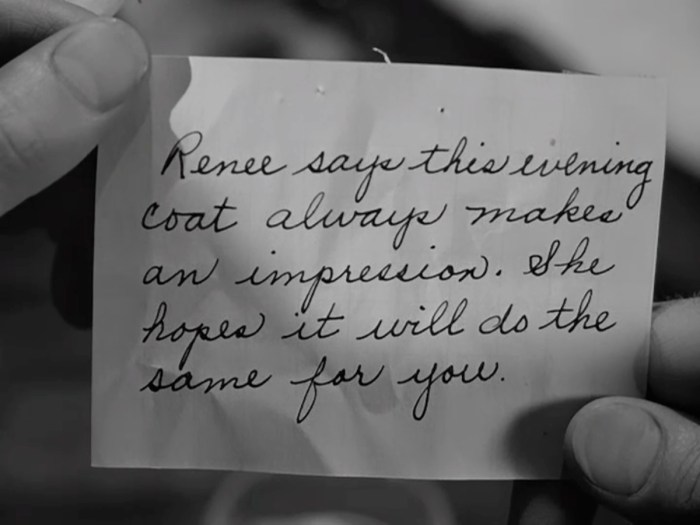 Renee says this evening
coat always makes
an impression. She
hopes it will do the
same for you.